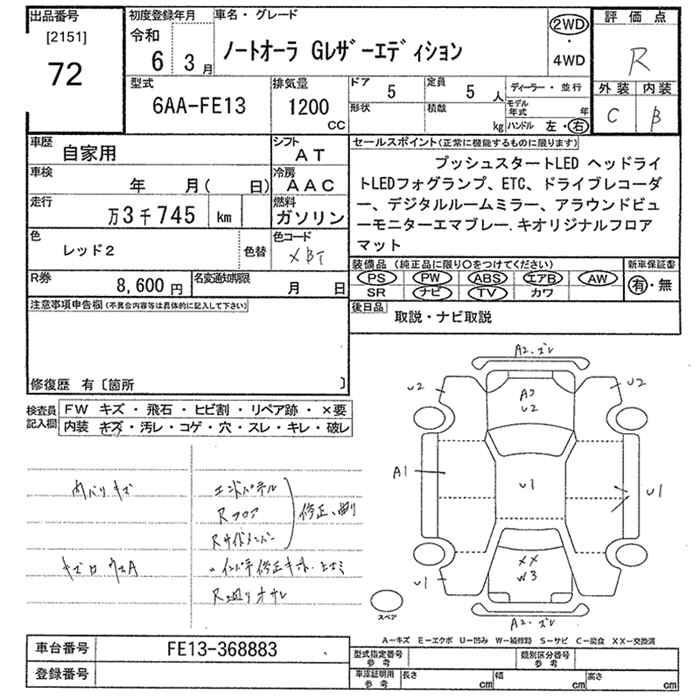 出品番号
[2151]
72
初度登録年月
令和
6 3月
車名・グレード
ノートオーラ Gレザーエディション
2WD
・
4WD
評価点
R
外装 内装
C B
型式
6AA-FE13
排気量
1200
CC
ドア 5
定員 5 人
形状
積載 kg
ディーラー・並行
モデル年式 年
ハンドル 左・右
車歴
自家用
シフト
AT
車検
年 月( 日)
冷房
AAC
走行
万3千745 km
燃料
ガソリン
色
レッド2
色替
色コード
XBT
R券
8,600円
名変通知期限
月 日
セールスポイント(正常に機能するものに限ります)
プッシュスタートLED ヘッドライ
トLEDフォグランプ、ETC、ドライブレコーダ
ー、デジタルルームミラー、アラウンドビュ
ーモニターエマブレー.キオリジナルフロア
マット
装備品 (純正品に限り○をつけてください)
新車保証書
PS PW ABS エアB AW
SR ナビ TV カワ
有・無
後日品
取説・ナビ取説
注意事項申告欄(不具合内容等は具体的に記入して下さい)
修復歴 有〔箇所 〕
検査員
記入欄
FW キズ・飛石・ヒビ割・リペア跡・×要
内装 キズ・汚レ・コゲ・穴・スレ・キレ・破レ
内ハリキズ
エンドパネル
Rフロア
Rサイドメンバー
修正、曲り
A2.ズレ
U2
U2
A2
U2
A1
U1
U1
U1
XX
W3
A2.ズレ
スペア
A－キズ E－エクボ U－凹み W－補修跡 S－サビ C－腐食 XX－交換済
車台番号
FE13-368883
登録番号
型式指定番号
参考
類別区分番号
参考
車庫証明用
参考
長さ cm
幅 cm
高さ cm